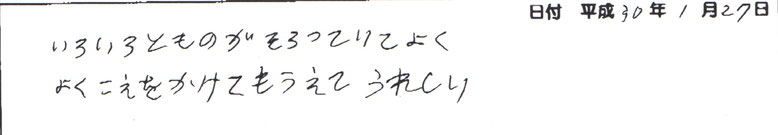 日付 平成30年1月27日
いろいろとものがそろっていてよく
よくこえをかけてもうえてうれしい